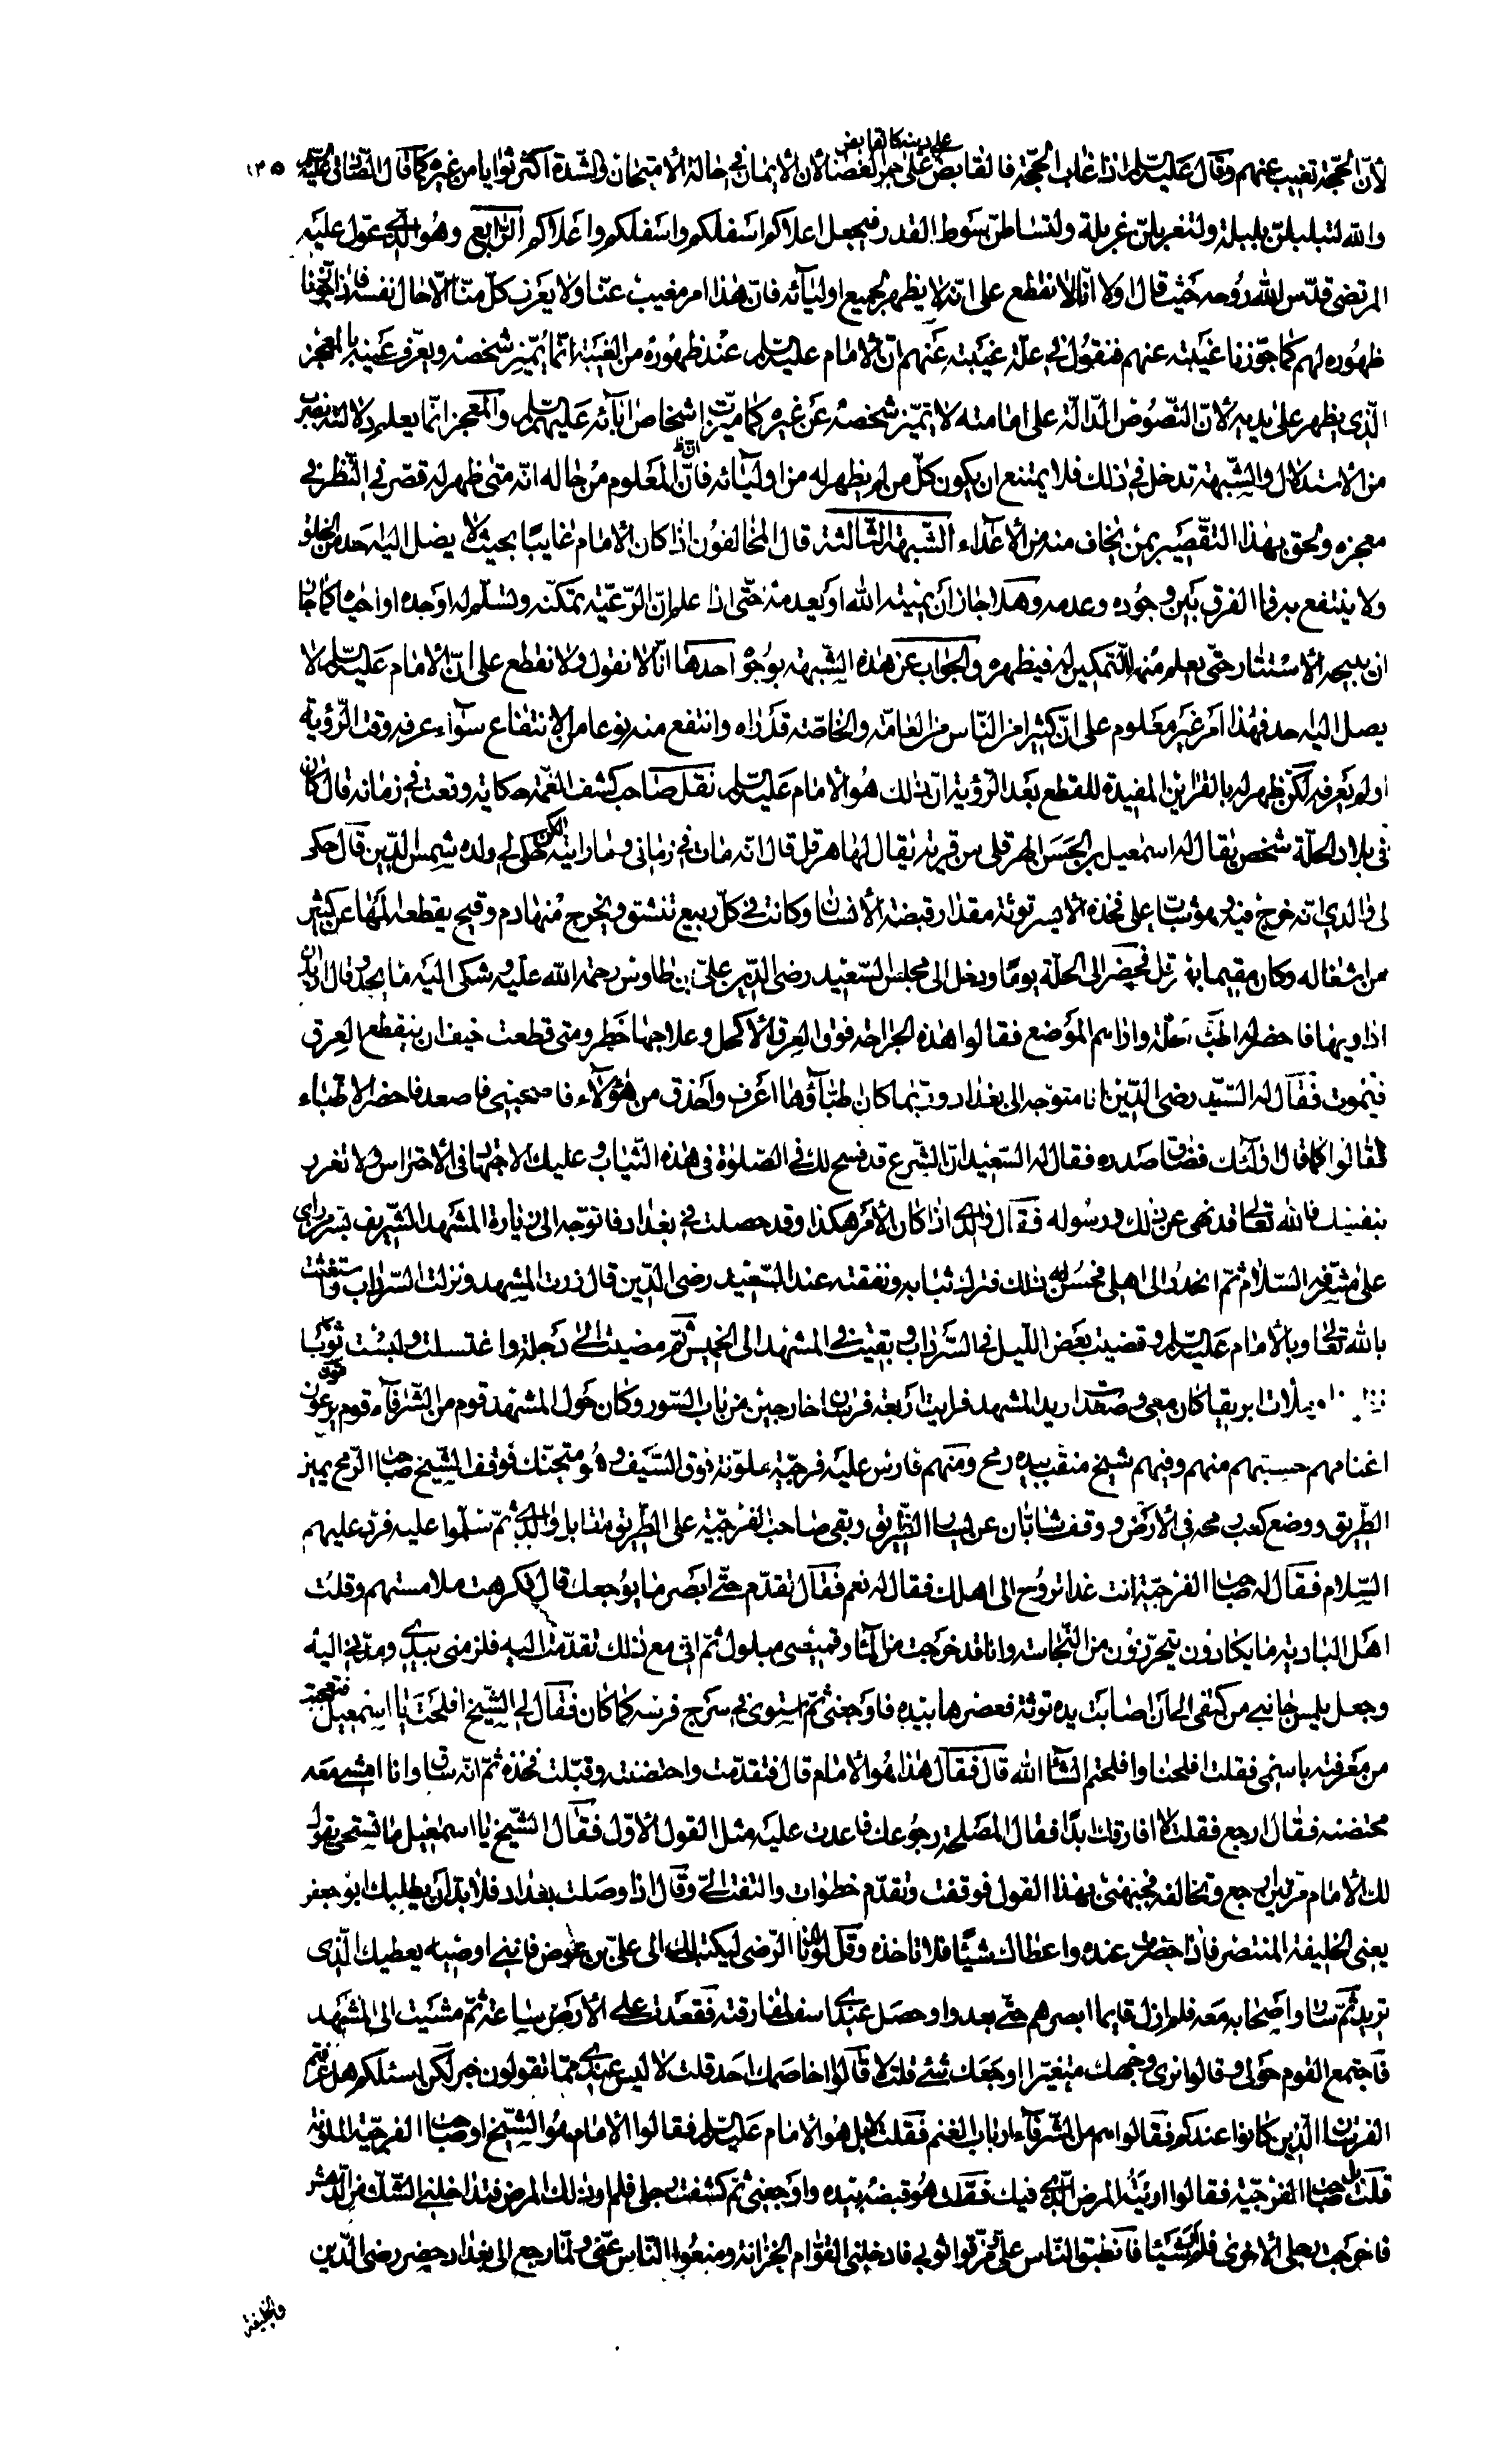 ١٣٥
على دينه كالقابض
لأنّ الحجّة تغيب عنهم وقال عليه السلام اذا غاب الحجّة فالقابض على جمر الغضا لأن الأيمان في حالة الأمتحان والشدة اكثر ثوابا من غيره كما قال الصّادق عليه السلام
والله لتبلبلنّ بلبلة ولتغربلنّ غربلة ولتساطنّ سوط القدر فيجعل اعلاكم اسفلكم واسفلكم واعلاكم الرّابع وهو الّذي عوّل عليه
المرتضى قدّس الله روحه حيث قال اولا انّا لا نقطع على انّه لا يظهر لجميع اوليآئه فانّ هذا امر مغيب عنّا ولا يعرف كلّ منّا الّا حال نفسه فاذا جوّزنا
ظهوره لهم كما جوّزنا غيبته عنهم فنقول في علّة غيبته عنهم انّ الأمام عليه السلم عند ظهوره من الغيبة انّما يميّز شخصه ويعرف عينه بالمعجز
الّذي يظهر على يديه لأنّ النّصوص الدّالّة على امامته لا يتميّز شخصه عن غيره كما ميّزت اشخاص ابآئه عليهم السلم والمعجز انّما يعلم دلالته بضرب
من الأستدلال والشّبهة تدخل في ذلك فلا يمتنع ان يكون كلّ من لم يظهر له من اوليآئه فانّ المعلوم من حاله انّه متى ظهر له قصّر في النّظر في
معجزه ولحق بهذا التقصير بمن يخاف منه من الأعدآء الشّبهة الثّالثة قال المخالفون اذا كان الأمام غايبا بحيث لا يصل اليه احد من الخلق
ولا ينتفع به فما الفرق بين وجوده وعدمه وهلا جاز أن يميته الله او يعدمه حتّى اذا علم انّ الرّعيّة تمكّنه وتسلّم له اوجده او احياه كما جاز
ان يبيحه الأستتار حتّى يعلم منهم التّمكين له فيظهره والجواب عن هذه الشّبهة بوجوه احدها انّا لا نقول ولا نقطع على انّ الأمام عليه السلم لا
يصل اليه احد فهذا امر غير معلوم على انّ كثيرا من النّاس من العامّة والخاصّة قد رآه وانتفع منه نوعا من الانتفاع سوآء عرفه وقت الرّؤية
او لم يعرفه لكن ظهر له بالقراين المفيدة للقطع بعد الرّؤية انّ ذلك هو الأمام عليه السلم نقل صاحب كشف الغمّة حكاية وقعت في زمانه قال كان
في بلاد الحلّة شخص يقال له اسمعيل بن الحسن الهرقلي من قرية يقال لها هرقل قال انّه مات في زماني وما رايته لكن حكى لي ولده شمس الدّين قال حكى
لي والدي انّه خرج فيه وهو شابّ على فخذه الأيسر توثة مقدار قبضة الأنسان وكانت في كلّ ربيع تنشق ويخرج منها دم وقيح يقطعه المها عن كثير
من اشغاله وكان مقيما بهرقل فحضر الى الحلّة يوما ودخل الى مجلس السّعيد رضى الدّين علىّ بن طاوس رحمة الله عليه وشكى اليه ما يجده وقال اريد ان
اداويها فاحضر له اطبّاء الحلّة واراهم الموضع فقالوا هذه الجراحة فوق العرق الأكحل وعلاجها خطر ومتى قطعت خيف ان ينقطع العرق
فيموت فقال له السّيّد رضى الدّين انا متوجّه الى بغداد وربّما كان اطبّآؤها اعرف واحذق من هؤلاء فاصحبني فاصعد فاحضر الاطبّاء
فقالوا كما قال اولئك فضاق صدره فقال له السّعيد انّ الشّرع قد فسح لك في الصّلوة في هذه الثّياب وعليك الاجتهاد في الأحتراس ولا تغرر
بنفسك فالله تعالى قد نهى عن ذلك ورسوله فقال والدي اذا كان الأمر هكذا وقد حصلت في بغداد فاتوجّه الى زيارة المشهد الشّريف بسرّ من راى
على مشرّفه السّلام ثمّ انحدر الى اهلي فحسّن له ذلك فترك ثيابه ونفقته عند السّعيد رضى الدّين قال زرت المشهد ونزلت السّرداب واستغثت
بالله تعالى وبالأمام عليه السلم وقضيت بعض اللّيل في السّرداب وبقيت في المشهد الى الخميس ثمّ مضيت الى دجلة واغتسلت ولبست ثوبا
وملأت ابريقا كان معي وصعدت اريد المشهد فرايت اربعة فرسان خارجين من باب السّور وكان حول المشهد قوم من الشّرفآء قوم يرعون
اغنامهم حسبتهم منهم وفيهم شيخ منقّب بيده رمح ومنهم فارس عليه فرجيّة ملوّنة فوق السّيف وهو متحنّك فوقف الشّيخ صاحب الرّمح يمين
الطّريق ووضع كعب رمحه في الأرض ووقف شابّان عن يسار الطّريق وبقى صاحب الفرجيّة على الطّريق مقابل والدي ثمّ سلّموا عليه فردّ عليهم
السّلام فقال له صاحب الفرجيّة انت غدا تروح الى اهلك فقال له نعم فقال تقدّم حتّى ابصر ما يوجعك قال فكرهت ملامستهم وقلت
اهل البادية ما يكادون يتحرّزون من النّجاسة وانا قد خرجت من المآء وقميصى مبلول ثمّ انّي مع ذلك تقدّمت اليه فلزمنى بيدى ومدّني اليه
وجعل يلمس جانبي من كتفي الى ان اصابت يده توثة فعصرها بيده فاوجعني ثمّ استوى في سرج فرسه كما كان فقال لي الشّيخ افلحت يا اسمعيل فتعجّبت
من معرفته باسمي فقلت افلحنا وافلحتم انشآء الله قال فقال هذا هو الأمام قال فتقدّمت واحتضنته وقبّلت فخذه ثمّ انّه ساق وانا امشي معه
محتضنه فقال ارجع فقلت لا افارقك ابدا فقال المصلحة رجوعك فاعدت عليه مثل القول الأوّل فقال الشّيخ يا اسمعيل ما تستحي يقول
لك الأمام مرّتين ارجع وتخالفه فجبهني بهذا القول فوقفت وتقدّم خطوات والتفت الىّ وقال اذا وصلت بغداد فلا بدّ ان يطلبك ابو جعفر
يعني الخليفة المنتصر فاذا حضرت عنده واعطاك شيئا فلا تاخذه وقل لولدنا الرّضى ليكتب لك الى علىّ بن عوض فانني اوصيه يعطيك الّذي
تريد ثمّ سار واصحابه معه فلم ازل قايما ابصرهم حتّى بعدوا وحصل عندي اسف لمفارقته فقعدت على الأرض ساعة ثمّ مشيت الى المشهد
فاجتمع القوم حولي وقالوا نرى وجهك متغيّرا اوجعك شيء قلت لا قالوا اخاصمك احد قلت لا ليس عندي ممّا تقولون خبر لكن اسئلكم هل عرفتم
الفرسان الّذين كانوا عندكم فقالوا هم من الشّرفآء ارباب الغنم فقلت لا بل هو الأمام عليه السلم فقالوا الأمام هو الشّيخ او صاحب الفرجيّة الملوّنة
قلت بل صاحب الفرجيّة فقالوا اريته المرض الّذي فيك فقلت هو قبضه بيده واوجعني ثمّ كشفت رجلي فلم ار ذلك المرض فتداخلني الشّكّ من الدّهش
فاخرجت رجلي الأخرى فلم ار شيئا فانطبق النّاس علىّ ومزّقوا ثوبي فادخلني القوّام الخزانة ومنعوا النّاس عنّي ولمّا رجع الى بغداد حضر رضى الدّين
والخليفة